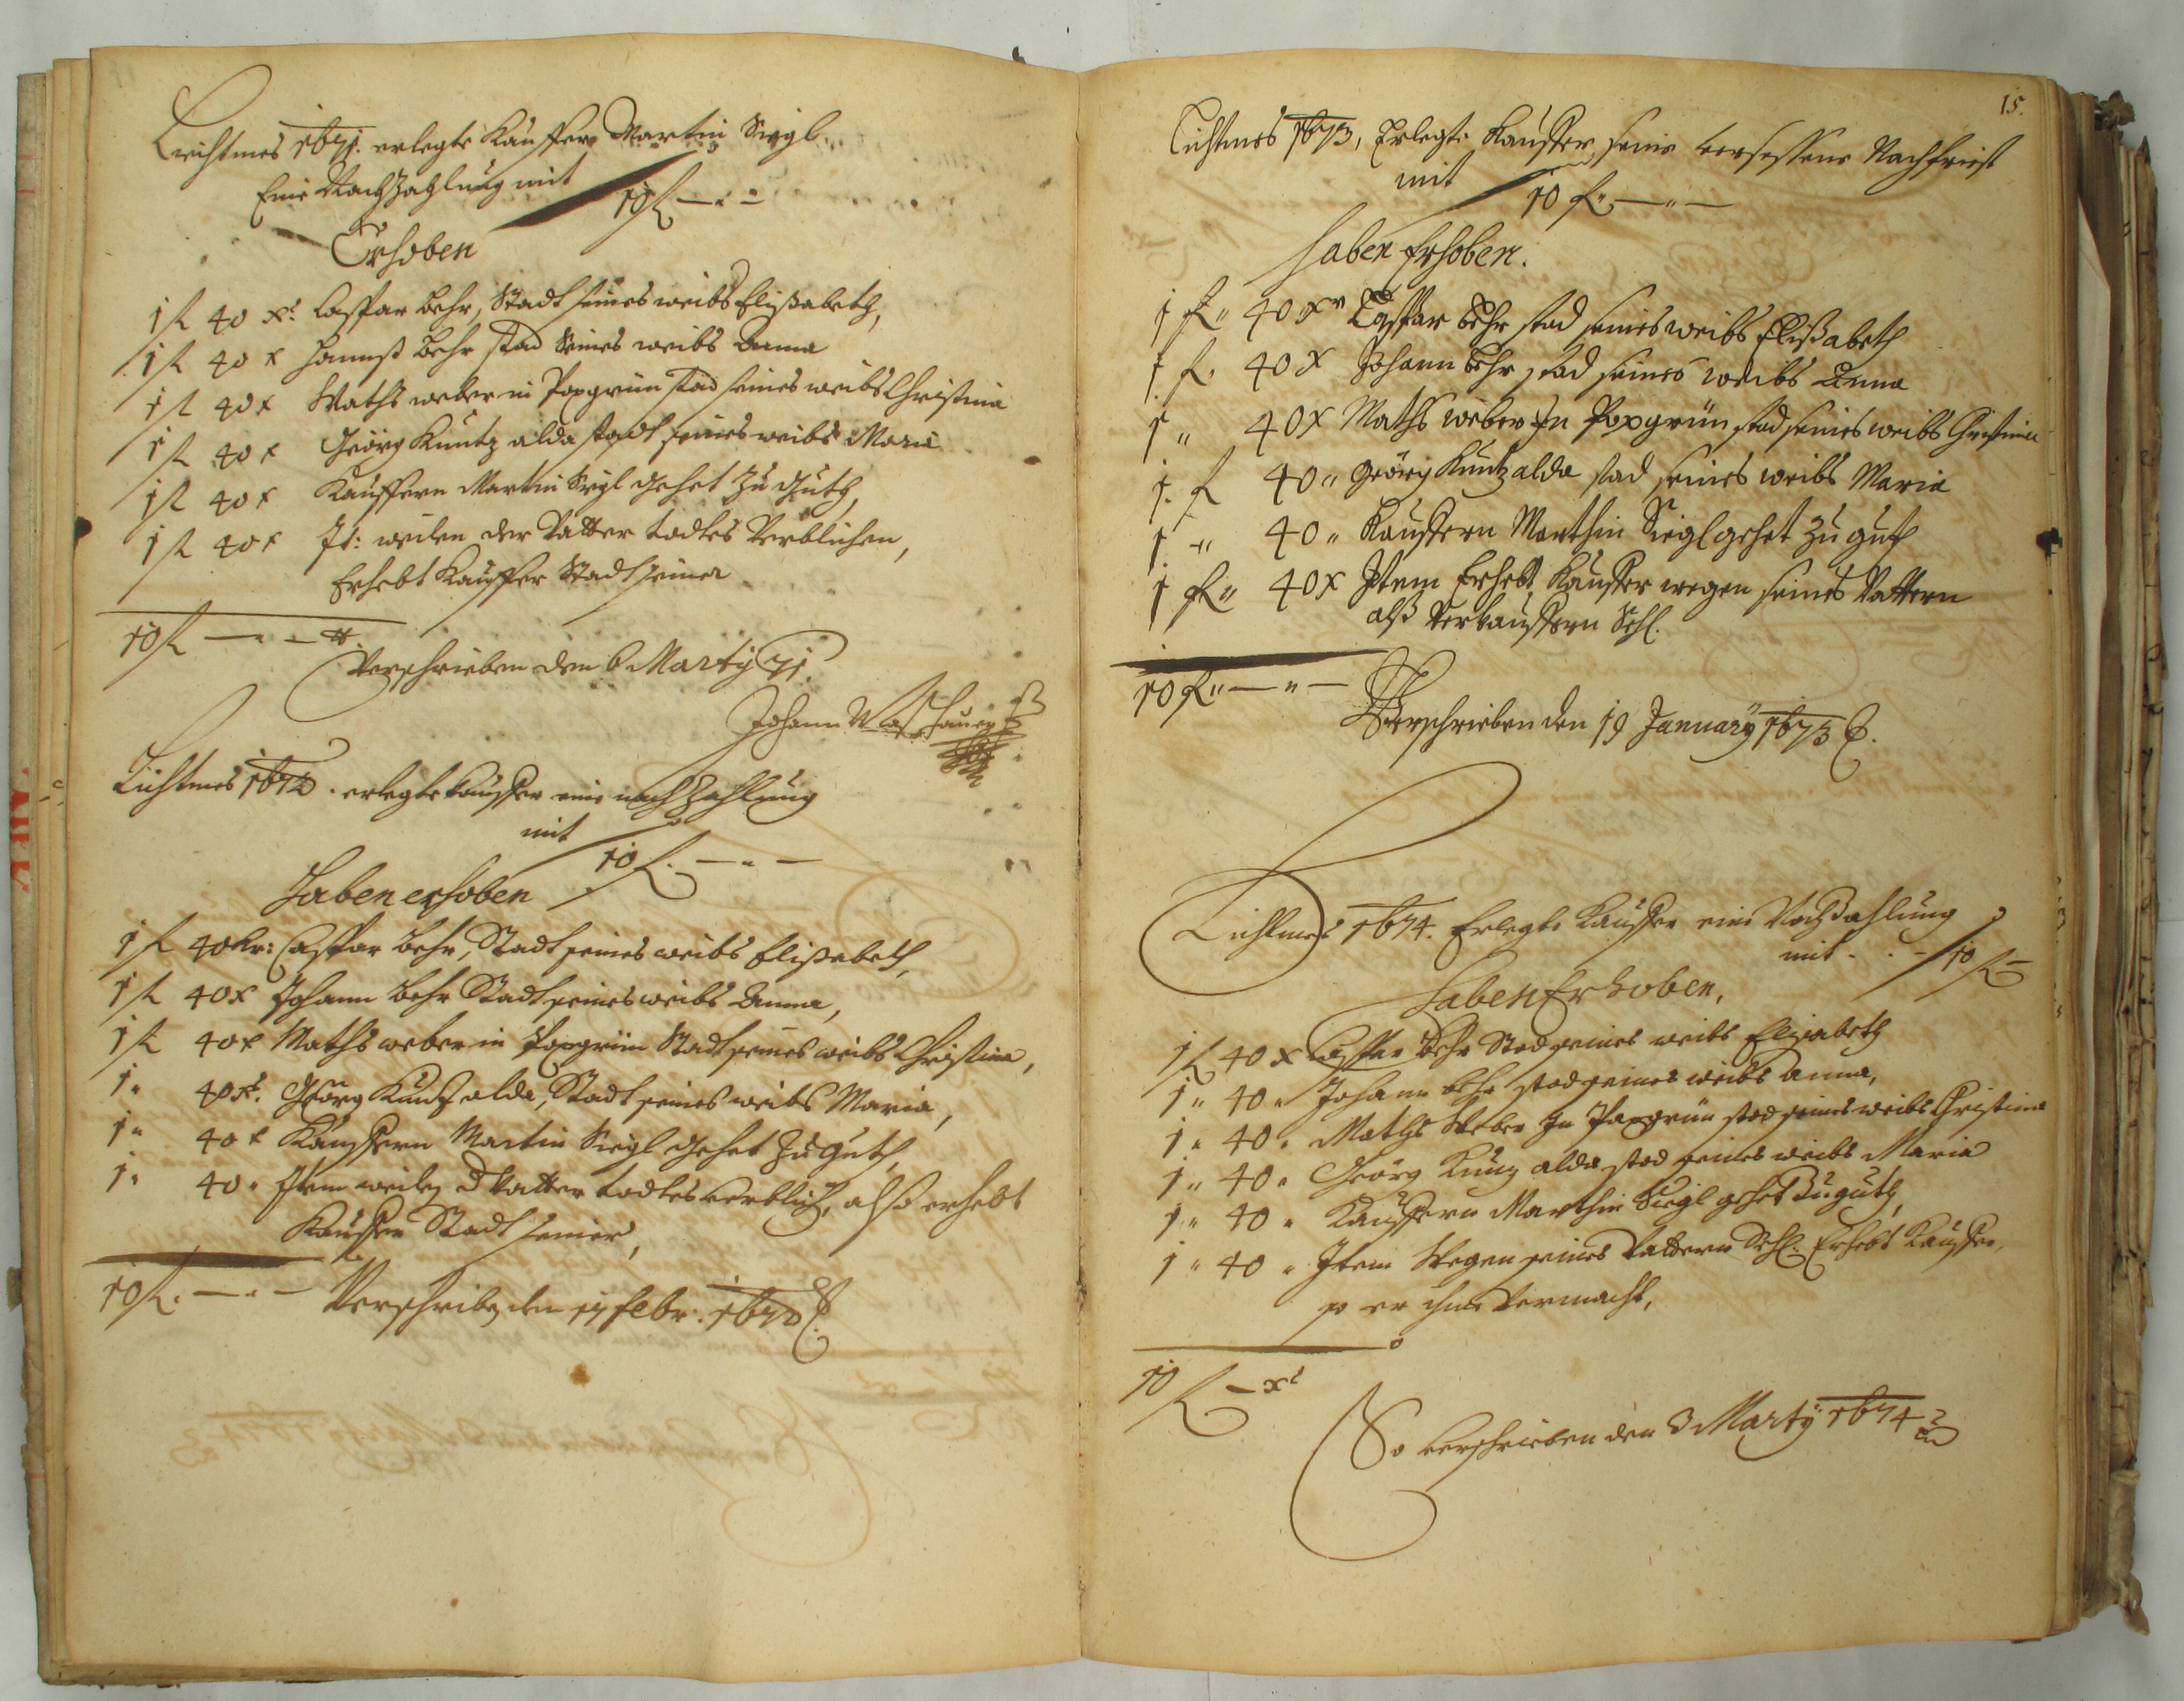 Liechtmes 1671. erlegte Kauffer Martin Siegl
Eine Nachzahlung mit
10 fl — " —
Erhoben
1 fl 40 xr. Casspar Behr, Stadt seines weibs Elißabeth,
1 fl 40 x Hannß Behr stad Seines weibs Anna
1 fl 40 x Maths weber in Poxgrün stad seines weibs Christina
1 fl 40 x Geörg Kuntz alda stadt seines weibs Maria
1 fl 40 x Kauffern Martin Siegl gehet zu Guth,
1 fl 40 x It: weilen der Vatter todtes Verblichen,
Erhebt Kauffer Stadt seiner
10 fl — " —
Verschrieben den 6 Marty 71.
Johann
Lichtmes 1672. erlegte Kauffer eine nachzahlung
mit
10 fl. — " —
Haben erhoben
1 fl 40 kr: Casspar Behr, Stadt seines weibs Elißabeth,
1 fl 40 x Johann Behr Stadt seines weibs Anna,
1 fl 40 x Maths weber in Poxgrün Stadt seines weibs Christina,
1 " 40 x. Geörg Kuntz alda, Stadt seines weibs Maria,
1 " 40 x Kauffern Martin Siegl gehet Zu Guth,
1 " 40 " Item weiln d Vatter todtes verblich, alß erhebt
Kauffer Stadt seiner,
10 fl. — " — Verschribn den 17 Febr. 1672
15.
Lichtmes 1673, Erlegte Kauffer seine versessene Nachfrist
mit
10 fl " — " —
Haben Erhoben.
1 fl " 40 xr Casspar Behr stad seines weibs Elißabeth
1 fl. 40 x Johann Behr stad seines weibs Anna
1 " 40 x Maths weber In Poxgrün stad seines weibs Christina
1. fl 40 " Geörg Kuntz alda stad seines weibs Maria
1 " 40 " Kauffern Marthin Siegl gehet zu guth
1 fl " 40 x Item Erhebt Kauffer wegen seines Vattern
alß Verkauffern Sehl.
10 fl " — " —
Verschrieben den 19 January 1673
Lichtmes 1674. Erlegte Kauffer eine Nachzahlung
mit . . — 10 fl —
Haben Erhoben,
1 fl 40 x Casspar Behr Stad seines weibs Elisabeth
1 " 40 " Johann Behr stad seines weibs Anna,
1 " 40 " Maths Weber In Poxgrün stad seines weibs Christina
1 " 40 " Geörg Kunz alda stad seines weibs Maria
1 " 40 " Kauffern Marthin Siegl gehet Zu guth,
1 " 40 " Item Wegen seines Vattern Sehl. Erhebt Kauffer,
so er ihme Vermacht,
10 fl — xr
So verschrieben den 3 Marty 1674